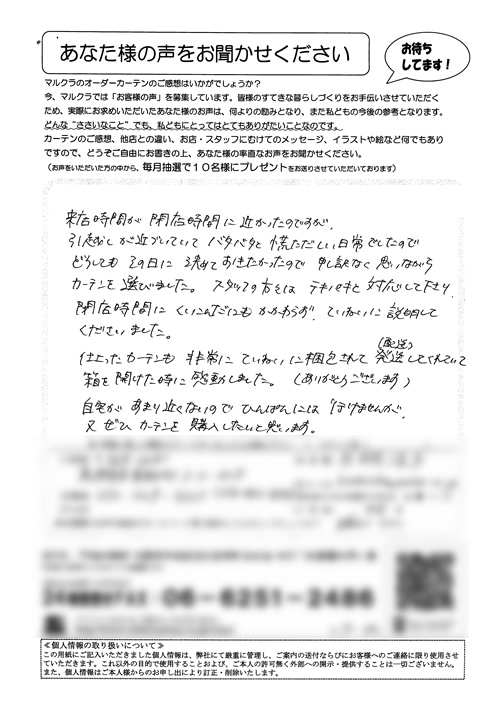 あなた様の声をお聞かせください
お待ち
してます!
マルクラのオーダーカーテンのご感想はいかがでしょうか?
今、マルクラでは「お客様の声」を募集しています。皆様のすてきな暮らしづくりをお手伝いさせていただく
ため、実際にお求めいただいたあなた様のお声は、何よりの励みとなり、また私どもの今後の参考となります。
どんな“ささいなこと”でも、私どもにとってはとてもありがたいことなのです。
カーテンのご感想、他店との違い、お店・スタッフにむけてのメッセージ、イラストや絵など何でもあり
ですので、どうぞご自由にお書きの上、あなた様の率直なお声をお聞かせください。
(お声をいただいた方の中から、毎月抽選で10名様にプレゼントをお送りさせていただいております)
来店時間が閉店時間に近かったのですが、
引越しが近づいていてバタバタと慌ただしい日常でしたので
どうしてもその日に決めておきたかったので申し訳なく思いながら
カーテンを選びました。スタッフの方々はテキパキと対応して下さり、
閉店時間にくいこんだにもかかわらず、ていねいに説明して
くださいました。
(配送)
仕上ったカーテンも非常にていねいに梱包されて発送してくれていて
箱を開けた時に感動しました。(ありがとうございます)
自宅があまり近くないのでひんぱんには行けませんが、
又ぜひカーテンを購入したいと思います。
06-6251-2486
≪個人情報の取り扱いについて≫
この用紙にご記入いただきました個人情報は、弊社にて厳重に管理し、ご案内の送付ならびにお客様へのご連絡に限り使用させ
ていただきます。これ以外の目的で使用することおよび、ご本人の許可無く外部への開示・提供することは一切ございません。
また、個人情報はご本人様からのお申し出により訂正・削除いたします。